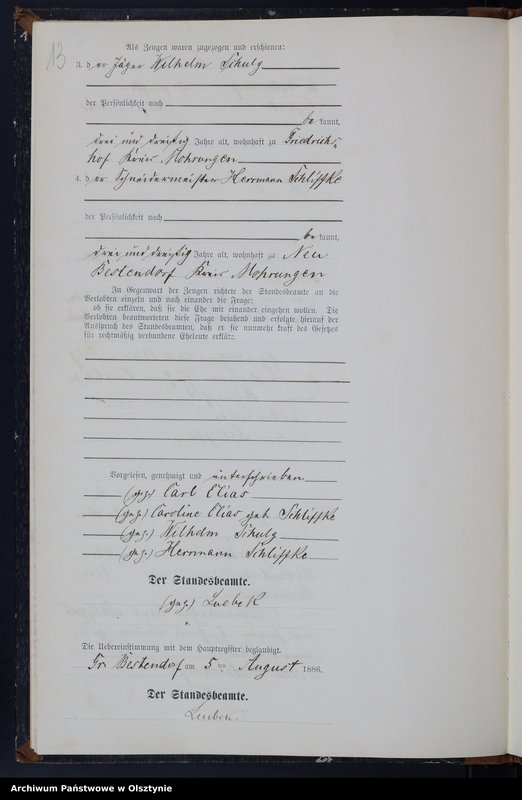 13
Als Zeugen waren zugezogen und erschienen:
3. der Jäger Wilhelm Schulz
der Persönlichkeit nach
be kannt,
drei und dreißig Jahre alt, wohnhaft zu Friedrichs-
hof Kreis Mohrungen
4. der Schneidermeister Herrmann Schliffke
der Persönlichkeit nach
be kannt,
drei und dreißig Jahre alt, wohnhaft zu Neu
Bestendorf Kreis Mohrungen
In Gegenwart der Zeugen richtete der Standesbeamte an die
Verlobten einzeln und nach einander die Frage:
ob sie erklären, daß sie die Ehe mit einander eingehen wollen. Die
Verlobten beantworteten diese Frage bejahend und erfolgte hierauf der
Ausspruch des Standesbeamten, daß er sie nunmehr kraft des Gesetzes
für rechtmäßig verbundene Eheleute erkläre.
Vorgelesen, genehmigt und unterschrieben
(gez.) Carl Elias
(gez.) Caroline Elias geb. Schliffke
(gez.) Wilhelm Schulz
(gez.) Herrmann Schliffke
Der Standesbeamte.
(gez.) Luebeck
Die Uebereinstimmung mit dem Hauptregister beglaubigt.
Gr. Bestendorf am 5ten August 1886.
Der Standesbeamte.
Luebeck.
Archiwum Państwowe w Olsztynie